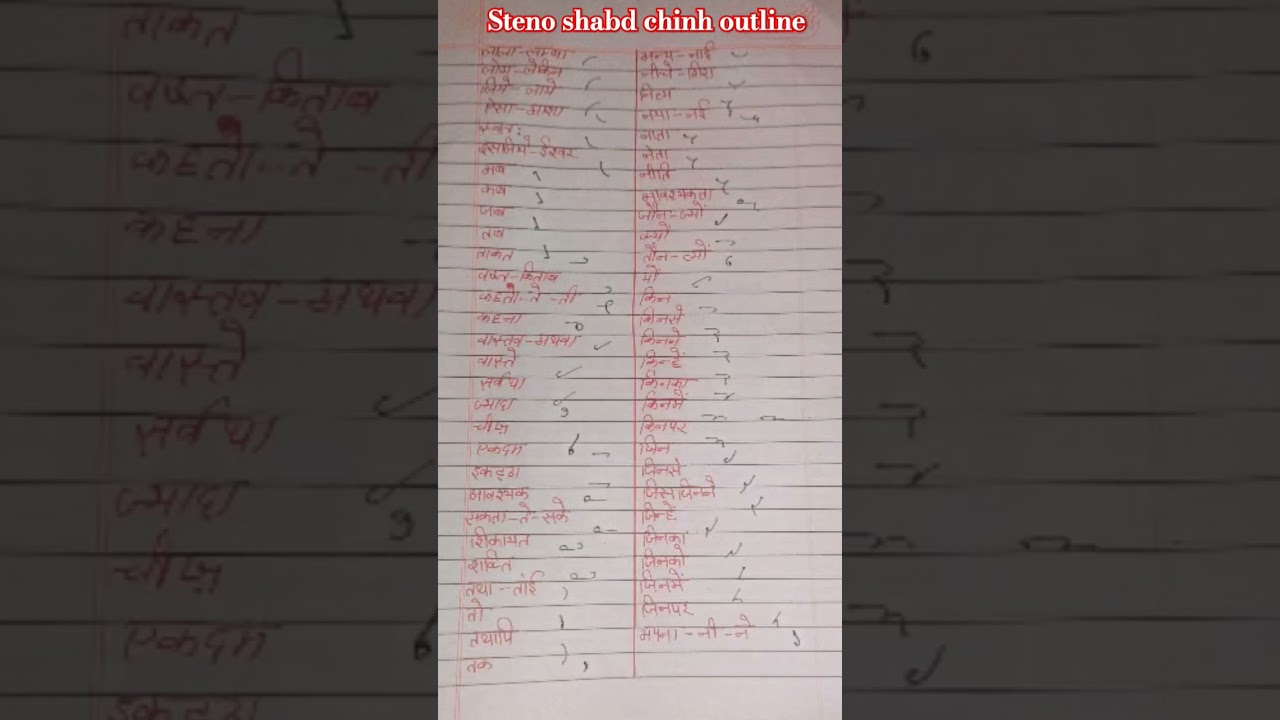 Steno shabd chinh outline
लाला-लम्बा
लोग-लेकिन
लिये-लाये
ऐसा-आशा
स्वतः
इसलिये-ईश्वर
अब
कब
जब
तब
ताकत
वक्त-किताब
कहतो-ते-ती
कहना
वास्तव-अथवा
वास्ते
सर्वथा
ज्यादा
चीज़
एकदम
इकट्ठा
आवश्यक
सकता-ते-सके
शिकायत
शक्ति
तथा-तांई
तो
तथापि
तक
अन्य-नाई
नीचे-
नित्य
नया-नई
नाता
नेता
नीति
आवश्यकता
जौन-ज्यों
क्यों
तौन-त्यों
यों
किन
किनसे
किनने
किन्हें
किनका
किनमें
किनपर
जिन
जिनसे
जिस जिनने
जिन्हें
जिनका
जिनको
जिनमें
जिनपर
अपना-नी-ने